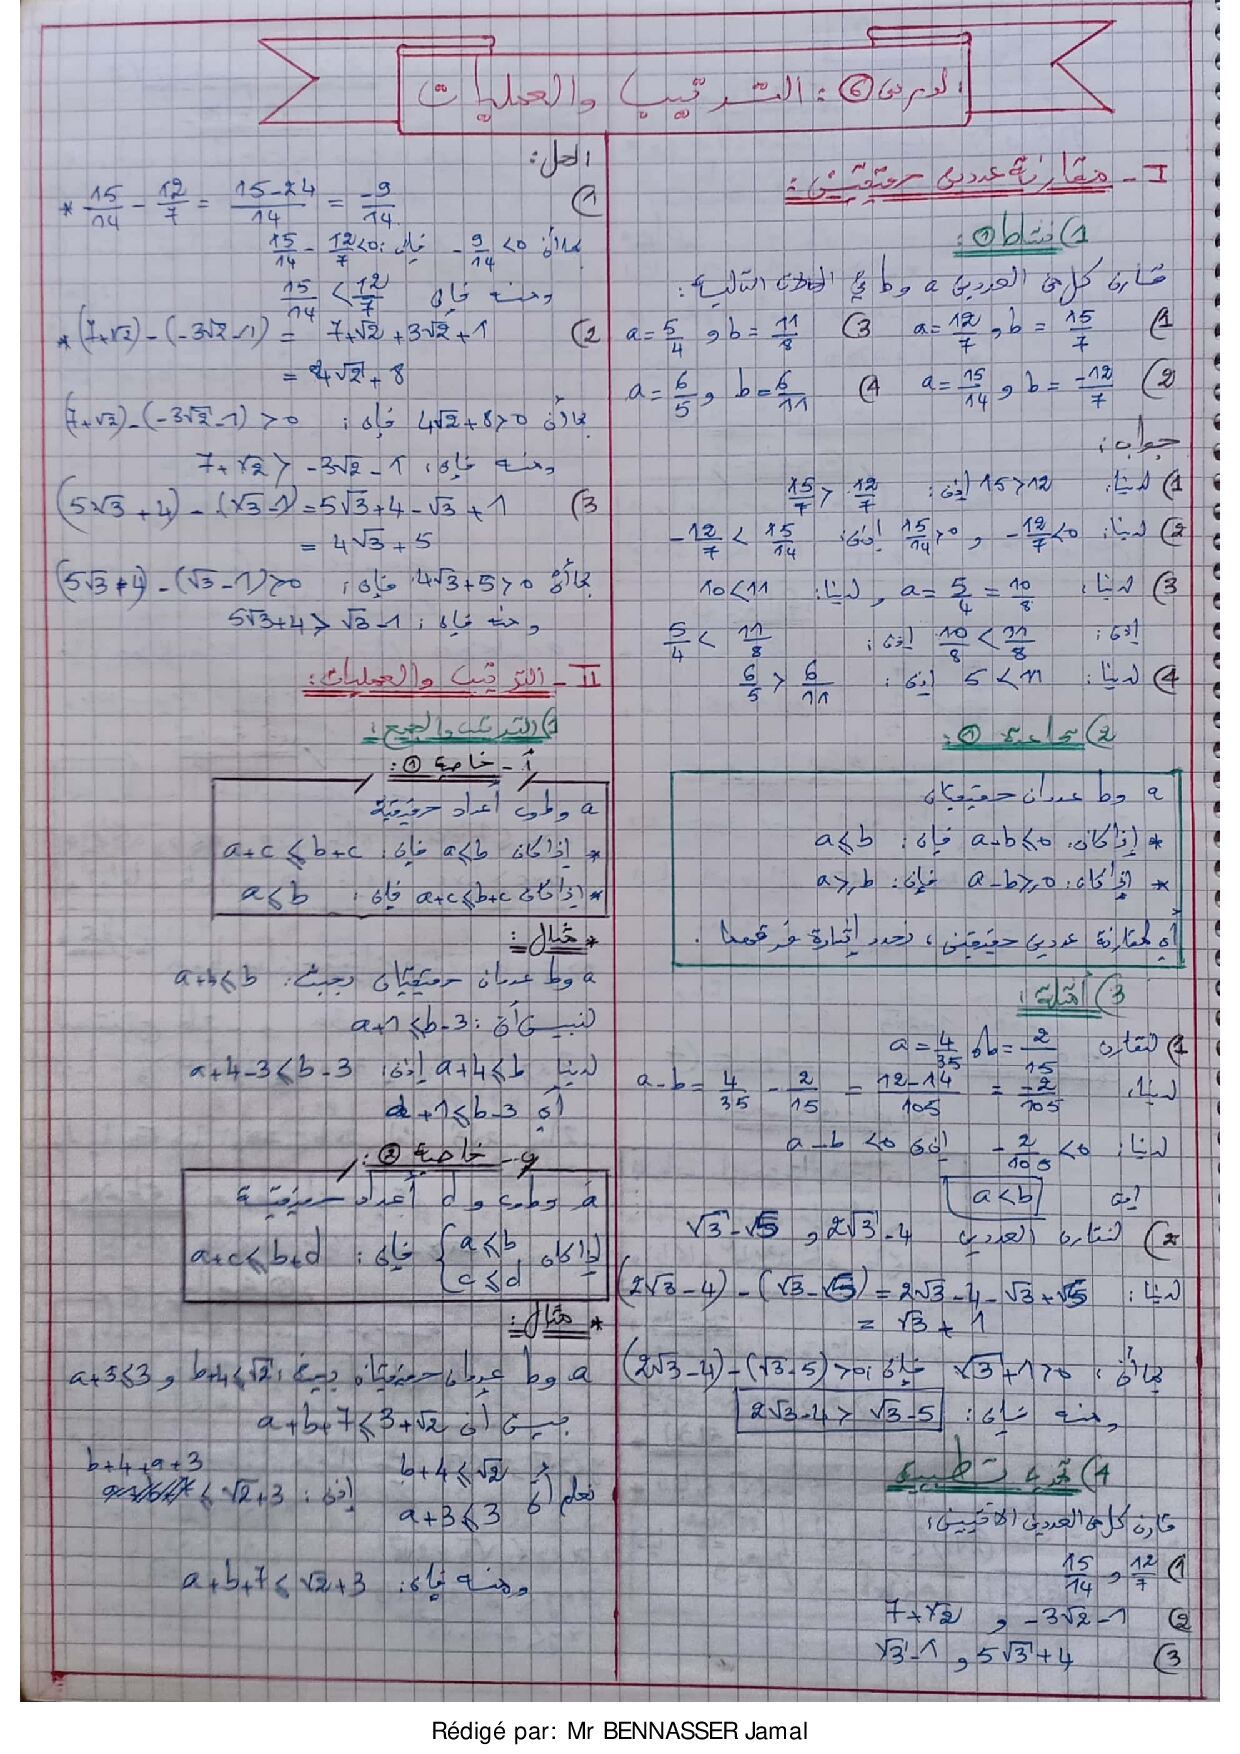 الدرس ⑥ : الترتيب والعمليات
I - مقارنة عددين حقيقيين :
1) نشاط ① :
قارن كل من العددين a و b في الحالات التالية :
1) a = 12/7 و b = 15/7
3) a = 5/4 و b = 11/8
2) a = 15/14 و b = -12/7
4) a = 6/5 و b = 6/11
جواب :
1) لدينا : 15 > 12 إذن : 15/7 > 12/7
2) لدينا : -12/7 < 0 و 15/14 > 0 إذن : -12/7 < 15/14
3) لدينا : a = 5/4 = 10/8 و لدينا : 10 < 11
إذن : 10/8 < 11/8 إذن : 5/4 < 11/8
4) لدينا : 5 < 11 إذن : 6/5 > 6/11
2) قاعدة ① :
a و b عددان حقيقيان
* إذا كان : a-b ⩽ 0 فإن : a ⩽ b
* إذا كان : a-b ⩾ 0 فإن : a ⩾ b
أي لمقارنة عددين حقيقيين ، نحدد إشارة فرقهما .
3) أمثلة :
1) لنقارن a = 4/35 و b = 2/15
لدينا : a-b = 4/35 - 2/15 = 12-14/105 = -2/105
لدينا : -2/105 < 0 إذن a-b < 0
إذن a < b
2) لنقارن العددين 2√3-4 و √3-√5
لدينا : (2√3-4) - (√3-√5) = 2√3-4-√3+√5
= √3 + 1
بما أن : √3+1 > 0 فإن : (2√3-4)-(√3-5) > 0
ومنه فإن : 2√3-4 > √3-5
4) تمرين تطبيقي
قارن كل من العددين الآتيين :
1) 12/7 و 15/14
2) -3√2-1 و 7+√2
3) 5√3+4 و √3-1
الحل :
1)
* 15/14 - 12/7 = 15-24/14 = -9/14
بما أن -9/14 < 0 فإن : 15/14 - 12/7 < 0
ومنه فإن 15/14 < 12/7
2) * (7+√2)-(-3√2-1) = 7+√2+3√2+1
= 4√2 + 8
بما أن 4√2+8 > 0 فإن : (7+√2)-(-3√2-1) > 0
ومنه فإن : 7+√2 > -3√2-1
3) (5√3+4)-(√3-1) = 5√3+4-√3+1
= 4√3 + 5
بما أن 4√3+5 > 0 فإن : (5√3+4)-(√3-1) > 0
ومنه فإن : 5√3+4 > √3-1
II - الترتيب والعمليات :
1) الترتيب والجمع :
أ - خاصية ① :
a و b و c أعداد حقيقية
* إذا كان a ⩽ b فإن : a+c ⩽ b+c
* إذا كان a+c ⩽ b+c فإن : a ⩽ b
* مثال :
a و b عددان حقيقيان بحيث : a+4 ⩽ b
لنبين أن : a+1 ⩽ b-3
لدينا a+4 ⩽ b إذن : a+4-3 ⩽ b-3
أي a+1 ⩽ b-3
ب - خاصية ② :
a و b و c و d أعداد حقيقية
إذا كان { a ⩽ b
c ⩽ d فإن : a+c ⩽ b+d
* مثال :
a و b عددان حقيقيان بحيث : b+4 ⩽ √2 و a+3 ⩽ 3
بين أن a+b+7 ⩽ 3+√2
نعلم أن b+4 ⩽ √2 و
a+3 ⩽ 3
إذن : b+4+a+3 ⩽ √2+3
ومنه فإن : a+b+7 ⩽ √2+3
Rédigé par: Mr BENNASSER Jamal